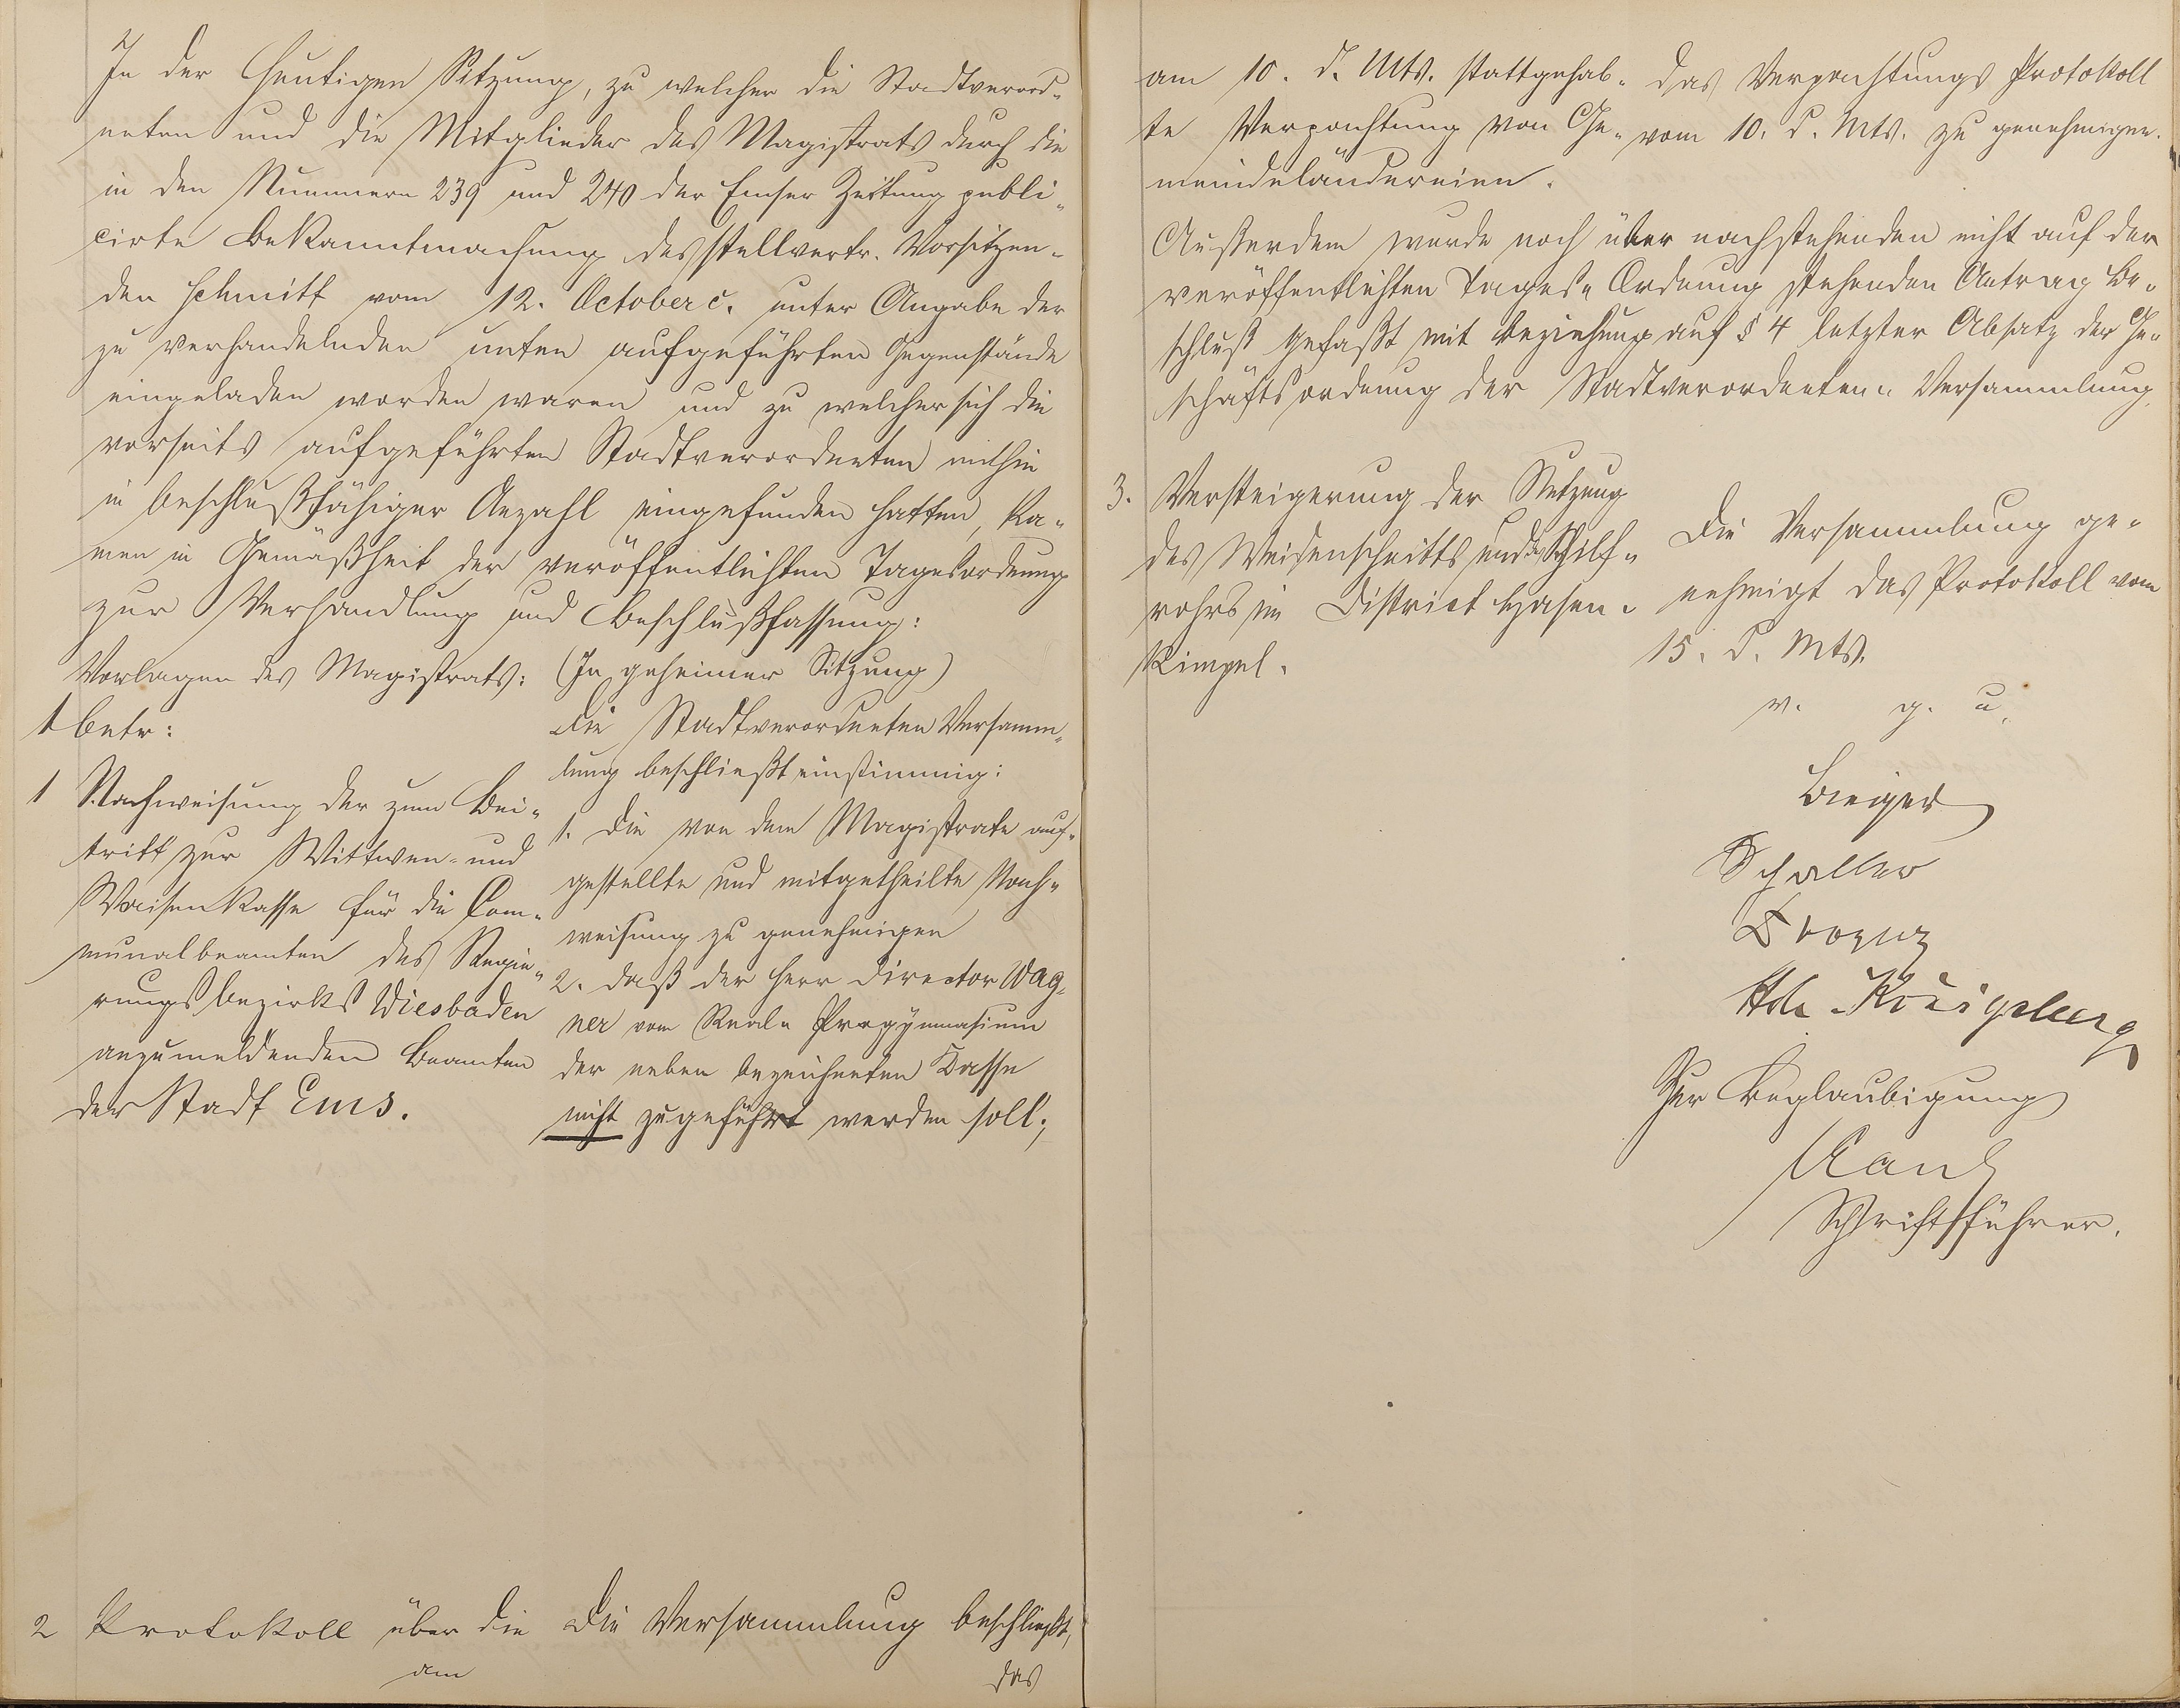 In der heutigen Sitzung, zu welcher die Stadtverord-
neten und die Mitglieder des Magistrats durch die
in den Nummern 239 und 240 der Emser Zeitung publi-
cirte Bekanntmachung des stellvertr. Vorsitzen-
den Schmitt vom 12. October c. unter Angabe der
zu verhandelnden unten aufgeführten Gegenstände
eingeladen worden waren und zu welcher sich die
vorseits aufgeführten Stadtverordneten mithin
in beschlußfähiger Anzahl eingefunden hatten, ka-
men in Gemäßheit der veröffentlichten Tagesordnung
zur Verhandlung und Beschlußfassung:
Vorlagen des Magistrats:
1 betr:
1 Nachweisung der zum Bei-
tritt zur Wittwen- und
Waisenkasse für die Com-
munalbeamten des Regie-
rungsbezirks Wiesbaden
anzumeldenden Beamten
der Stadt Ems.
(In geheimer Sitzung)
Die Stadtverordneten Versamm-
lung beschließt einstimmig:
1. die von dem Magistrate auf-
gestellte und mitgetheilte Nach-
weisung zu genehmigen
2. daß der Herr Director Wag-
ner vom Real- Progymnasium
der neben bezeichneten Kasse
nicht zugeführt werden soll;
2 Protokoll über die
am
Die Versammlung beschließt,
das
am 10. d. Mts. stattgehab-
te Verpachtung von Ge-
meindeländereien.
das Verpachtungs Protokoll
vom 10. d. Mts. zu genehmigen.
Außerdem wurde noch über nachstehenden nicht auf der
veröffentlichten Tages- Ordnung stehenden Antrag Be-
schluß gefaßt mit Beziehung auf § 4 letzter Absatz der Ge-
schäftsordnung der Stadtverordneten- Versammlung.
3. Versteigerung der Nutzung
des Weidenschnitts und des Schilf-
rohrs im District Hasen-
kümpel.
Die Versammlung ge-
nehmigt das Protokoll vom
15. d. Mts.
v. g. u.
Schaller
Königsberg
Zur Beglaubigung
Schriftführer.